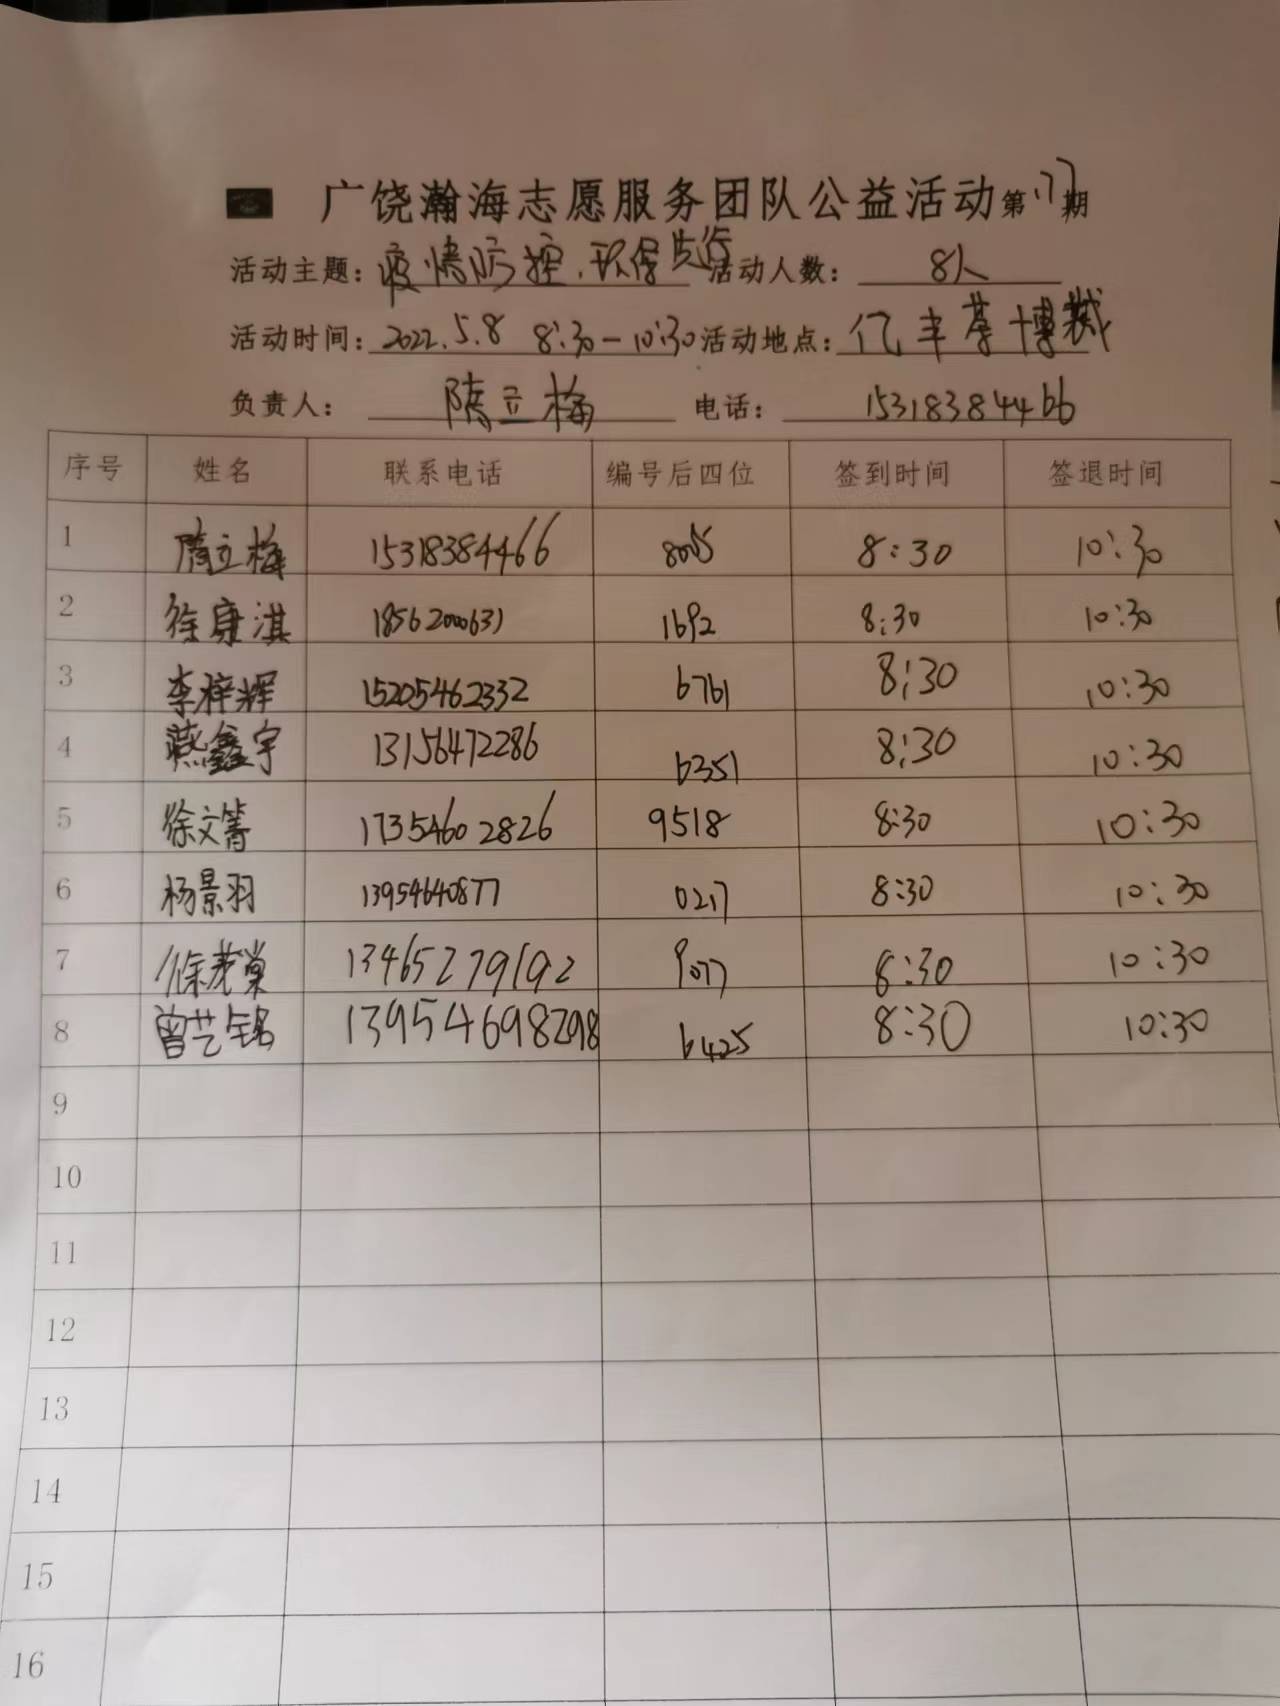 广饶瀚海志愿服务团队公益活动第17期
活动主题：疫情防控,环保先行 活动人数：8人
活动时间：2022.5.8 8:30-10:30 活动地点：亿丰
负责人：隋立梅 电话：15318384466
序号 姓名 联系电话 编号后四位 签到时间 签退时间
1 隋立梅 15318384466 8:30 10:30
2 徐康淇 18562000631 1692 8:30 10:30
3 李梓辉 15205462332 6761 8:30 10:30
4 燕鑫宇 13156472286 6351 8:30 10:30
5 徐文箐 17354602826 9518 8:30 10:30
6 杨景羽 13954640877 0217 8:30 10:30
7 徐茂棠 13465279192 9077 8:30 10:30
8 曾艺铭 13954698298 6425 8:30 10:30
9
10
11
12
13
14
15
16